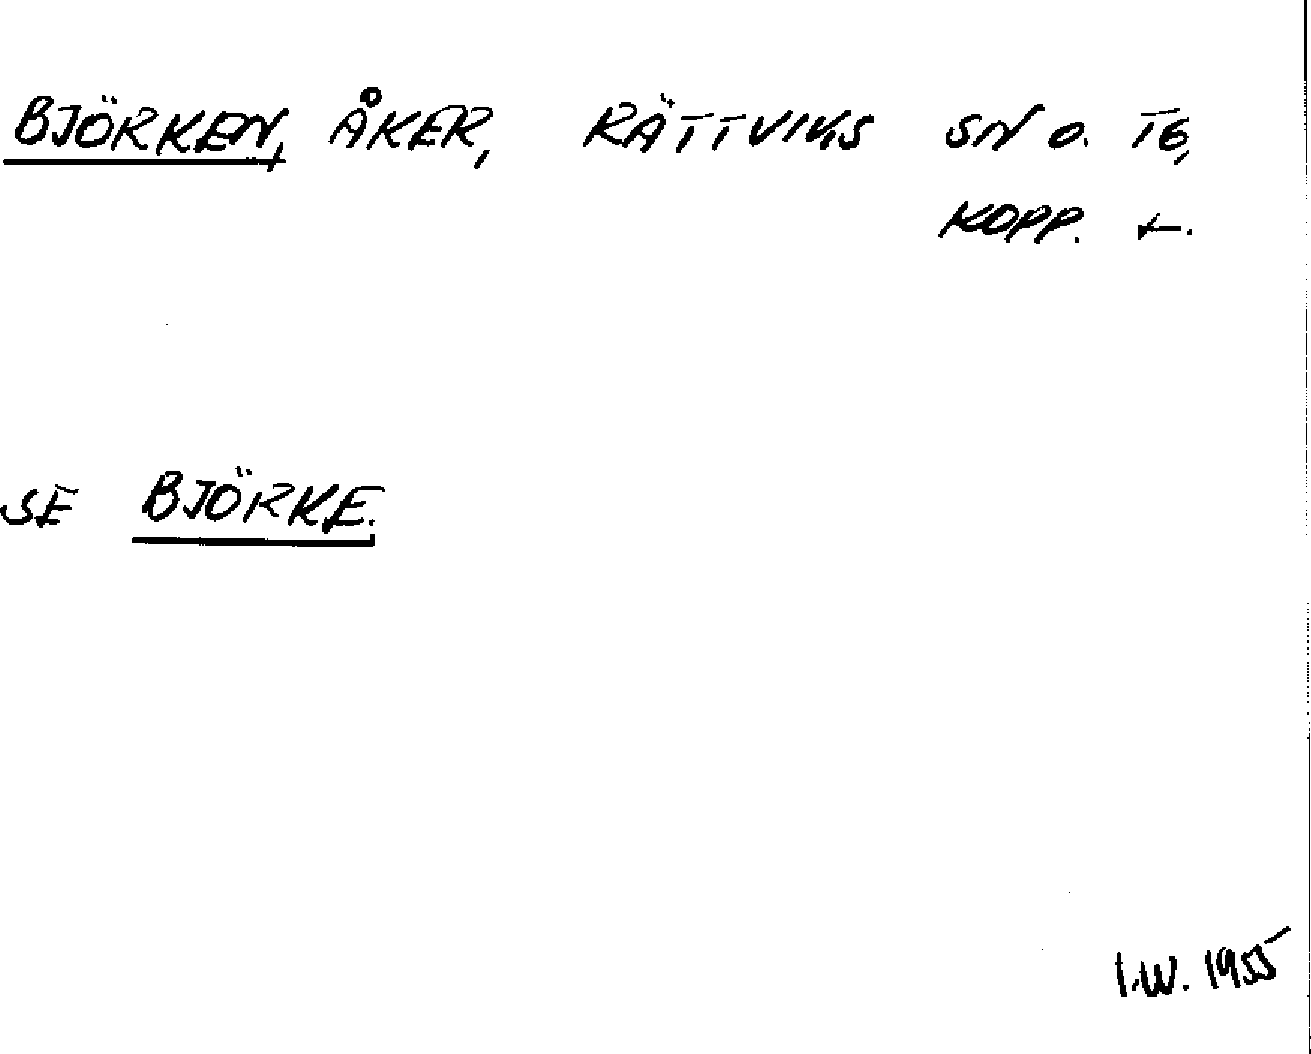 BJÖRKEN, ÅKER, RÄTTVIKS SN O. TG,
KOPP. L.
SE BJÖRKE.
I.W. 1955